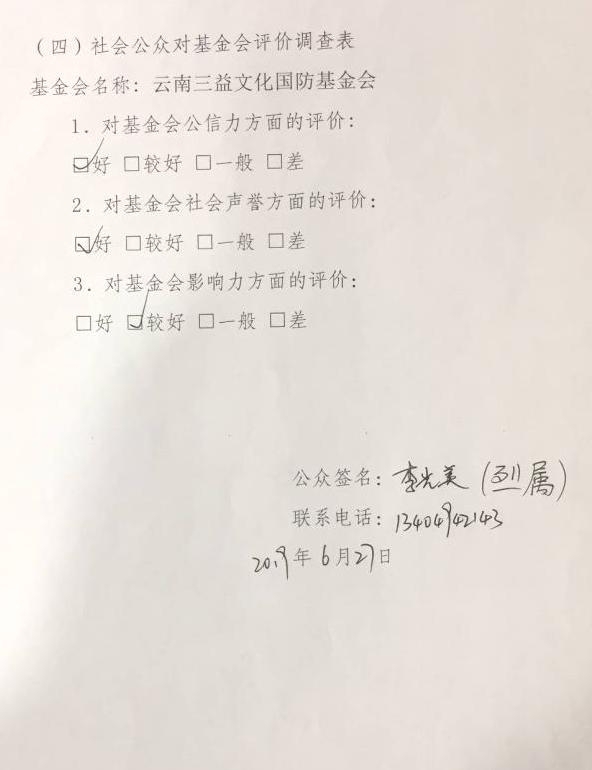 （四）社会公众对基金会评价调查表
基金会名称：云南三益文化国防基金会
1．对基金会公信力方面的评价：
☑好 □较好 □一般 □差
2．对基金会社会声誉方面的评价：
☑好 □较好 □一般 □差
3．对基金会影响力方面的评价：
□好 ☑较好 □一般 □差
公众签名：李光美（烈属）
联系电话：13404942143
2019年6月27日